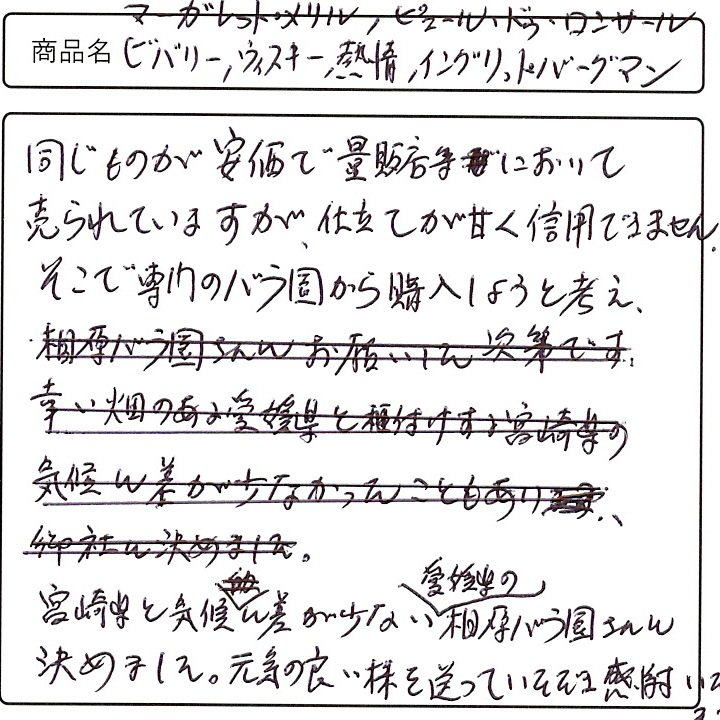 マーガレット・メリル, ピエール・ドゥ・ロンサール
商品名 ビバリー, ウィスキー, 熱情, イングリットバーグマン
同じものが安価で量販店等において
売られていますが、仕立てが甘く信用できません。
そこで専門のバラ園から購入しようと考え、
相原バラ園さんにお願いした次第です。
幸い畑のある愛媛県と植付けする宮崎県の
気候に差が少なかったこともあり、
御社に決めました。
愛媛県の
宮崎県と気候に差が少ない相原バラ園さんに
決めました。元気の良い株を送っていただき感謝いた